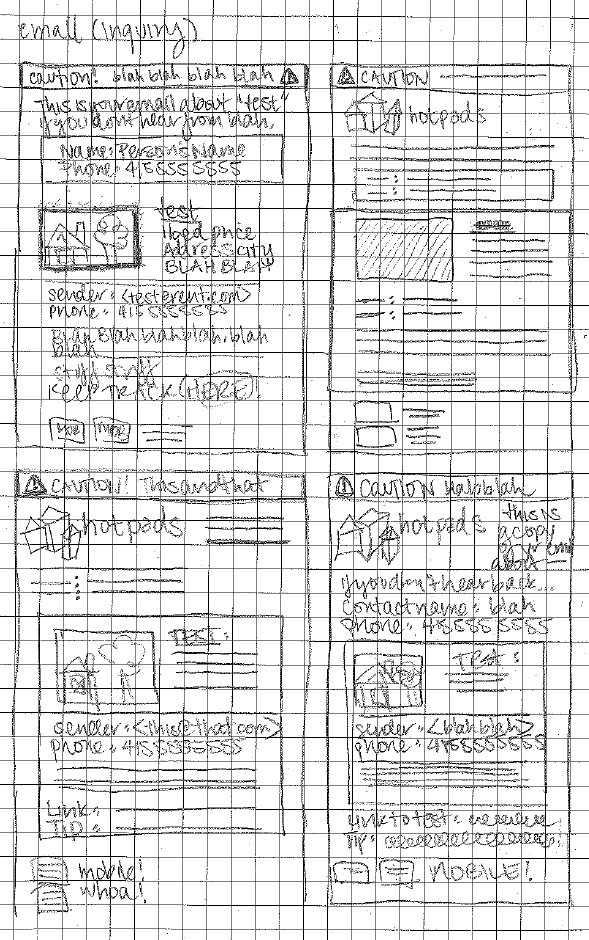 email (inquiry)
caution! blah blah blah blah
This is your email about "test"
if you don't hear from blah,
Name: Person's Name
Phone: 4158555555
test
listed price
Address city
BLAH BLAH
phone: 4155555555
Blah Blah blah blah, blah
blah
stuff
KEEP TRACK (HERE)!
CAUTION
hotpads
CAUTION! This and that
hotpads
TEST:
sender: <this@that.com>
phone: 4155555555
Link:
TIP:
mobile!
whoa!
CAUTION blah blah
hotpads
this is
a copy
of yr email
about
if you don't hear back...
contact name: blah
phone: 4155555555
sender: <blah blah>
phone: 4155555555
Link to test:
TIP:
MOBILE!